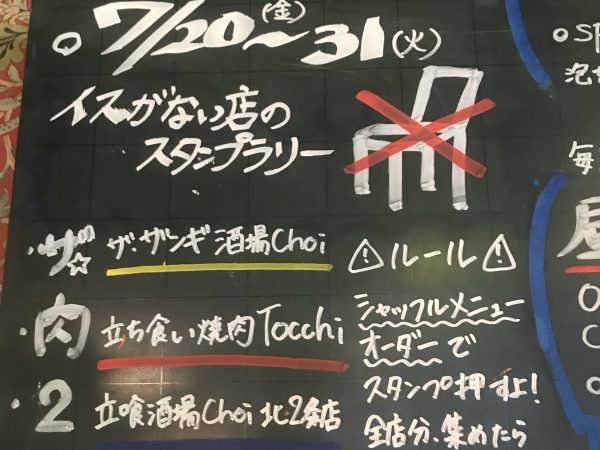 ○ 7/20(金)～31(火)
イスがない店の
スタンプラリー
・ザ☆ ザ・ザンギ酒場Choi
・肉 立ち食い焼肉Tocchi
・2 立喰酒場Choi 北2条店
⚠ルール⚠
シャッフルメニュー
オーダーで
スタンプ押すよ!
全店分、集めたら
○SP
泡
毎
昼